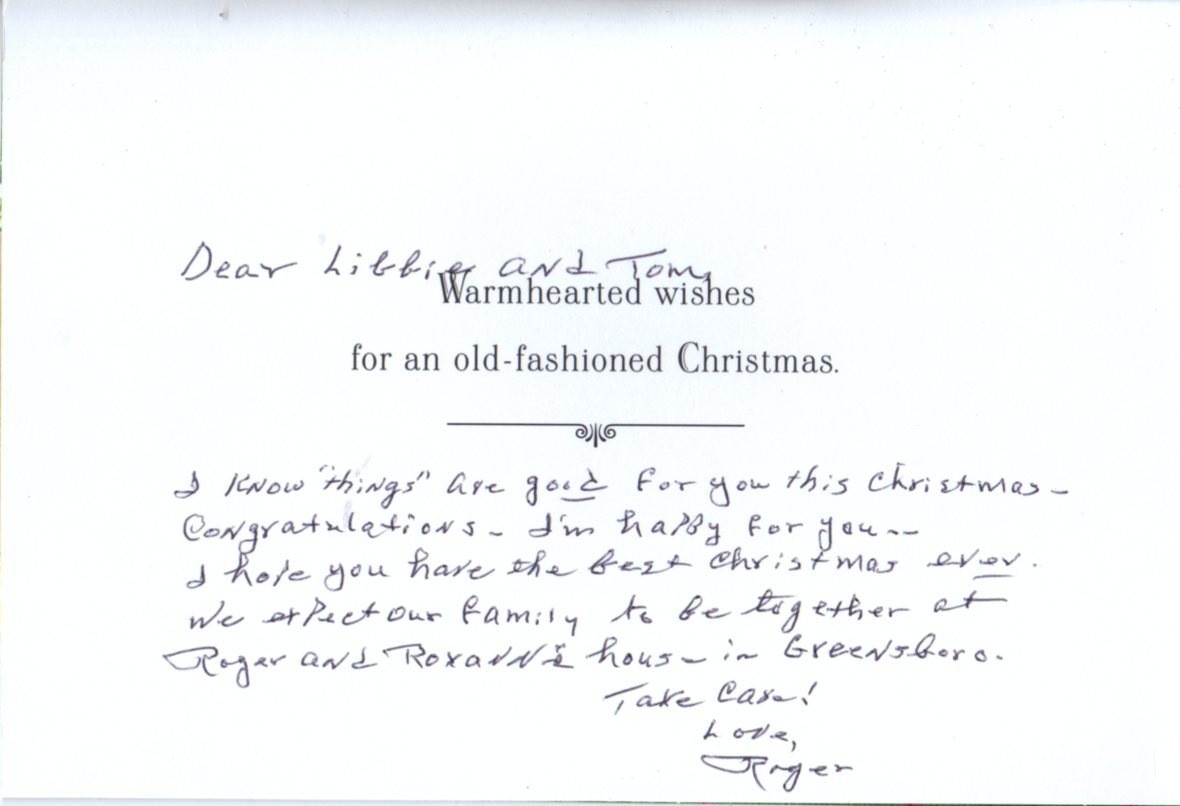 Dear Libbie and Tom,
Warmhearted wishes
for an old-fashioned Christmas.
I know "things" are good for you this Christmas -
Congratulations - I'm happy for you --
I hope you have the best Christmas ever.
We expect our family to be together at
Roger and Roxann's house in Greensboro.
Take Care!
Love,
Roger